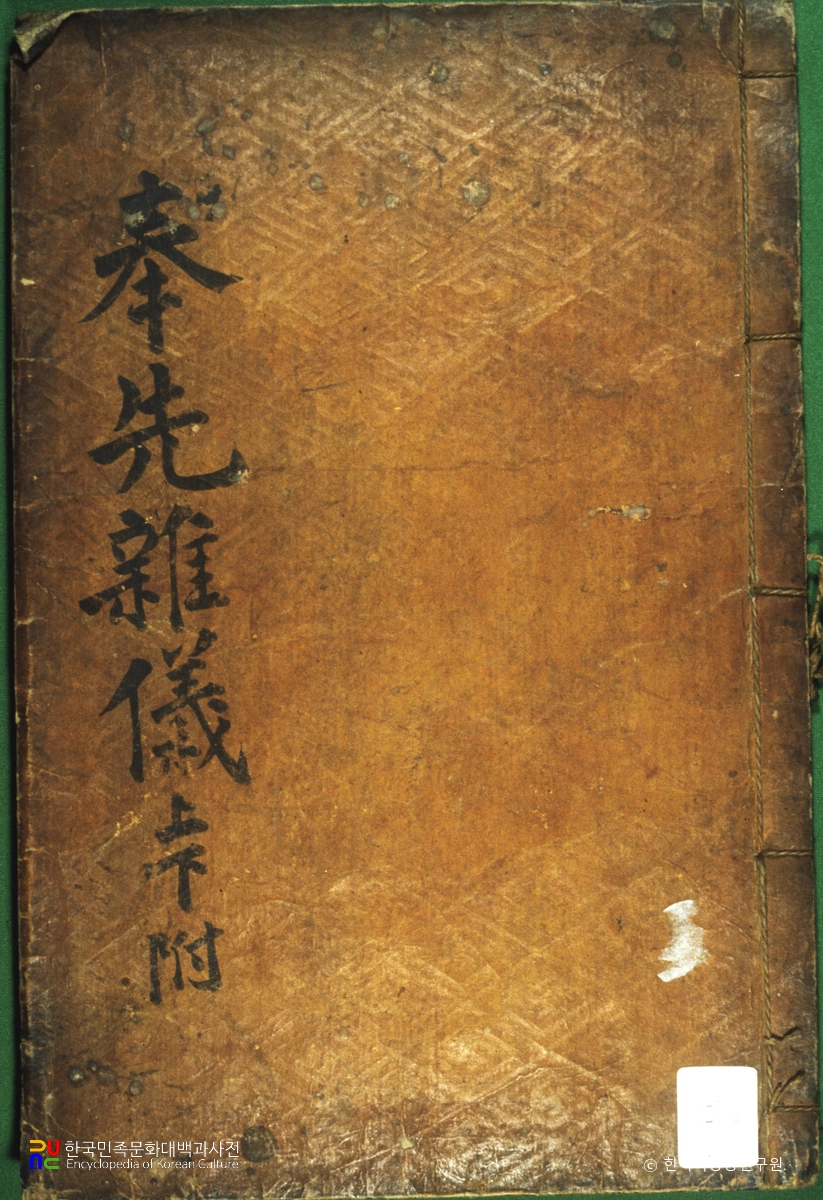 奉先雜儀 上下 附
한국민족문화대백과사전
Encyclopedia of Korean Culture
© 한국학중앙연구원